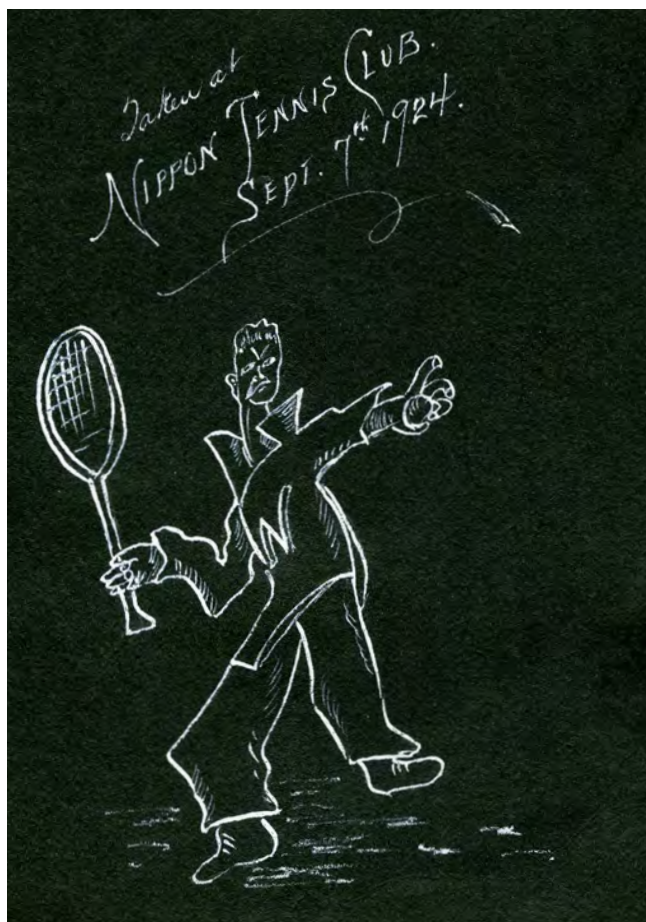 Taken at
NIPPON TENNIS CLUB.
SEPT. 7th 1924.
N